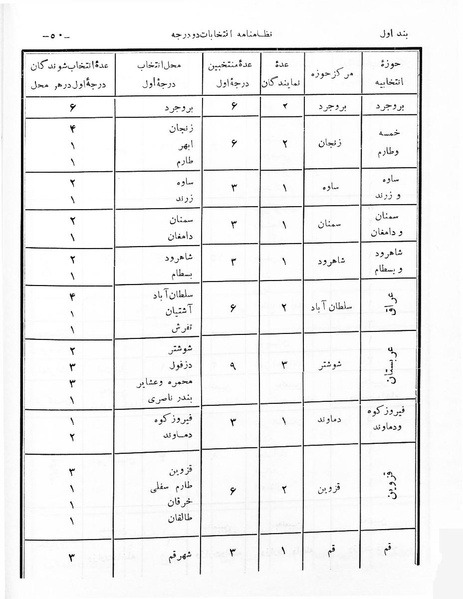 بند اول نظامنامه انتخابات دو درجه -۵۰-
حوزهٔ انتخابیه | مرکز حوزه | عدهٔ نمایندگان | عدهٔ منتخبین درجهٔ اول | محل انتخاب درجهٔ اول | عدهٔ انتخاب شوندگان درجهٔ اول در هر محل
بروجرد | بروجرد | ۲ | ۶ | بروجرد | ۶
خمسه وطارم | زنجان | ۲ | ۶ | زنجان | ۴
ابهر | ۱
طارم | ۱
ساوه و زرند | ساوه | ۱ | ۳ | ساوه | ۲
زرند | ۱
سمنان و دامغان | سمنان | ۱ | ۳ | سمنان | ۲
دامغان | ۱
شاهرود و بسطام | شاهرود | ۱ | ۳ | شاهرود | ۲
بسطام | ۱
عراق | سلطان آباد | ۲ | ۶ | سلطان آباد | ۴
آشتیان | ۱
تفرش | ۱
عربستان | شوشتر | ۳ | ۹ | شوشتر | ۲
دزفول | ۳
محمره وعشایر | ۳
بندر ناصری | ۱
فیروزکوه ودماوند | دماوند | ۱ | ۳ | فیروزکوه | ۱
دماوند | ۲
قزوین | قزوین | ۲ | ۶ | قزوین | ۳
طارم سفلی | ۱
خرقان | ۱
طالقان | ۱
قم | قم | ۱ | ۳ | شهر قم | ۳